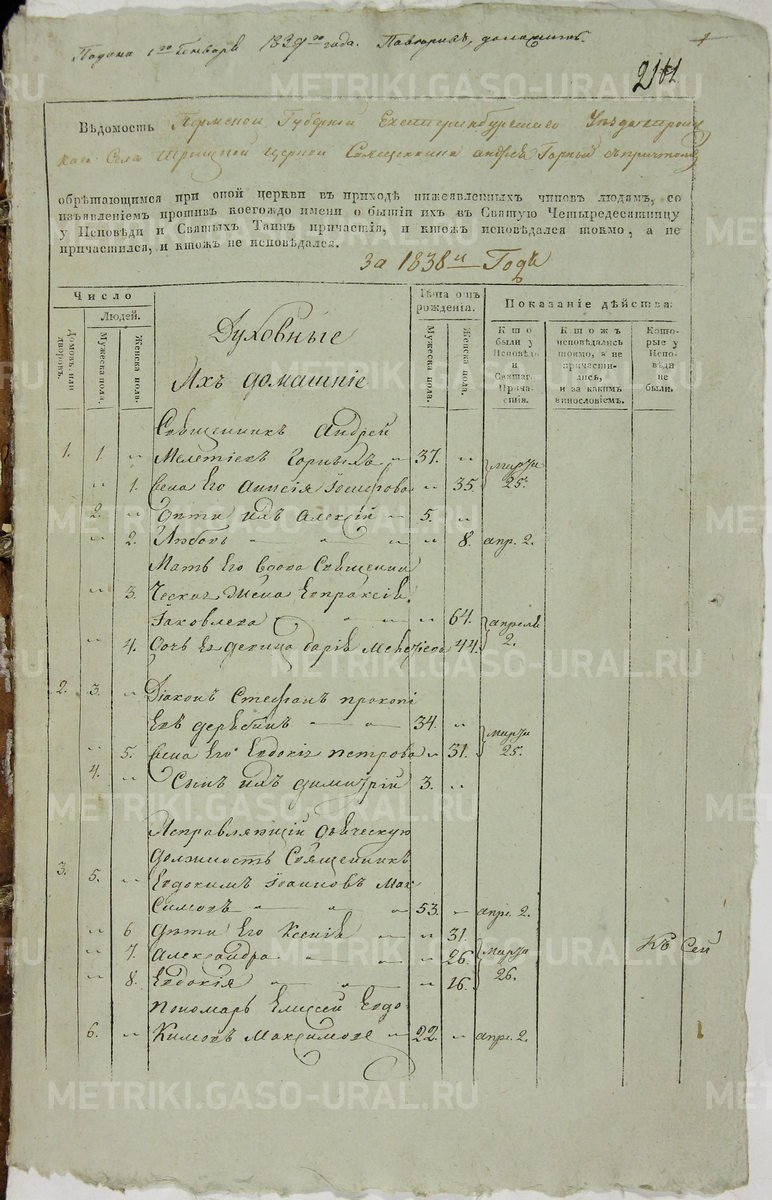 Подана 1го Генваря 1839го года.
2141
Вѣдомость Пермской Губерніи Екатеринбургскаго Уѣзда
каго Села Троицкой церкви Священника Андрея Горных съ причтомъ
обрѣтающимся при оной церкви въ приходѣ нижеявленныхъ чиновъ людямъ, со
изъявленіемъ противъ коегождо имени о бытіи их въ Святую Четыредесятницу
у Исповѣди и Святыхъ Таинъ причастія, и ктожъ исповѣдался токмо, а не
причастился, и ктожъ не исповѣдался.
За 1838й Годъ
Число
Людей.
Домовъ или дворовъ.
Мужеска пола.
Женска пола.
Духовные
Ихъ домашніе
Лѣта отъ рожденія.
Мужеска пола.
Женска пола.
Показаніе дѣйства.
Кто были у Исповѣди и Святаго Причастія.
Ктожъ исповѣдались токмо, а не причастились, и за какимъ винословіемъ.
Которые у Исповѣди не были.
Священникъ Андрей
1. 1. Мелетіевъ Горныхъ 37. марта 25.
1. Жена Его Анисія Іосифова 35.
2. Дѣти ихъ Алексій 5.
2. Любовь 8. апр. 2.
Мать Его вдова Священни
3. ческая Жена Евпраксія
Іаковлева 64. апреля 2.
4. Дочь Ея девица Дарія 44.
2. 3. Діаконъ Стефанъ прокопі
евъ дерябинъ 34. марта 25.
5. Жена Его Евдокія петрова 31.
4. Сынъ ихъ димитрій 3.
Исправляющій дьяческую
должность Священникъ
3. 5. Евдокимъ Іоанновъ Мак
симовъ 53. апр. 2.
6 Дѣти Его Ксенія 31.
7. Александра 26. марта 26.
8. Евдокія 16.
Къ Сей
пономарь Елисей Евдо
6. кимовъ Максимовъ 22. апр. 2.
METRIKI.GASO-URAL.RU